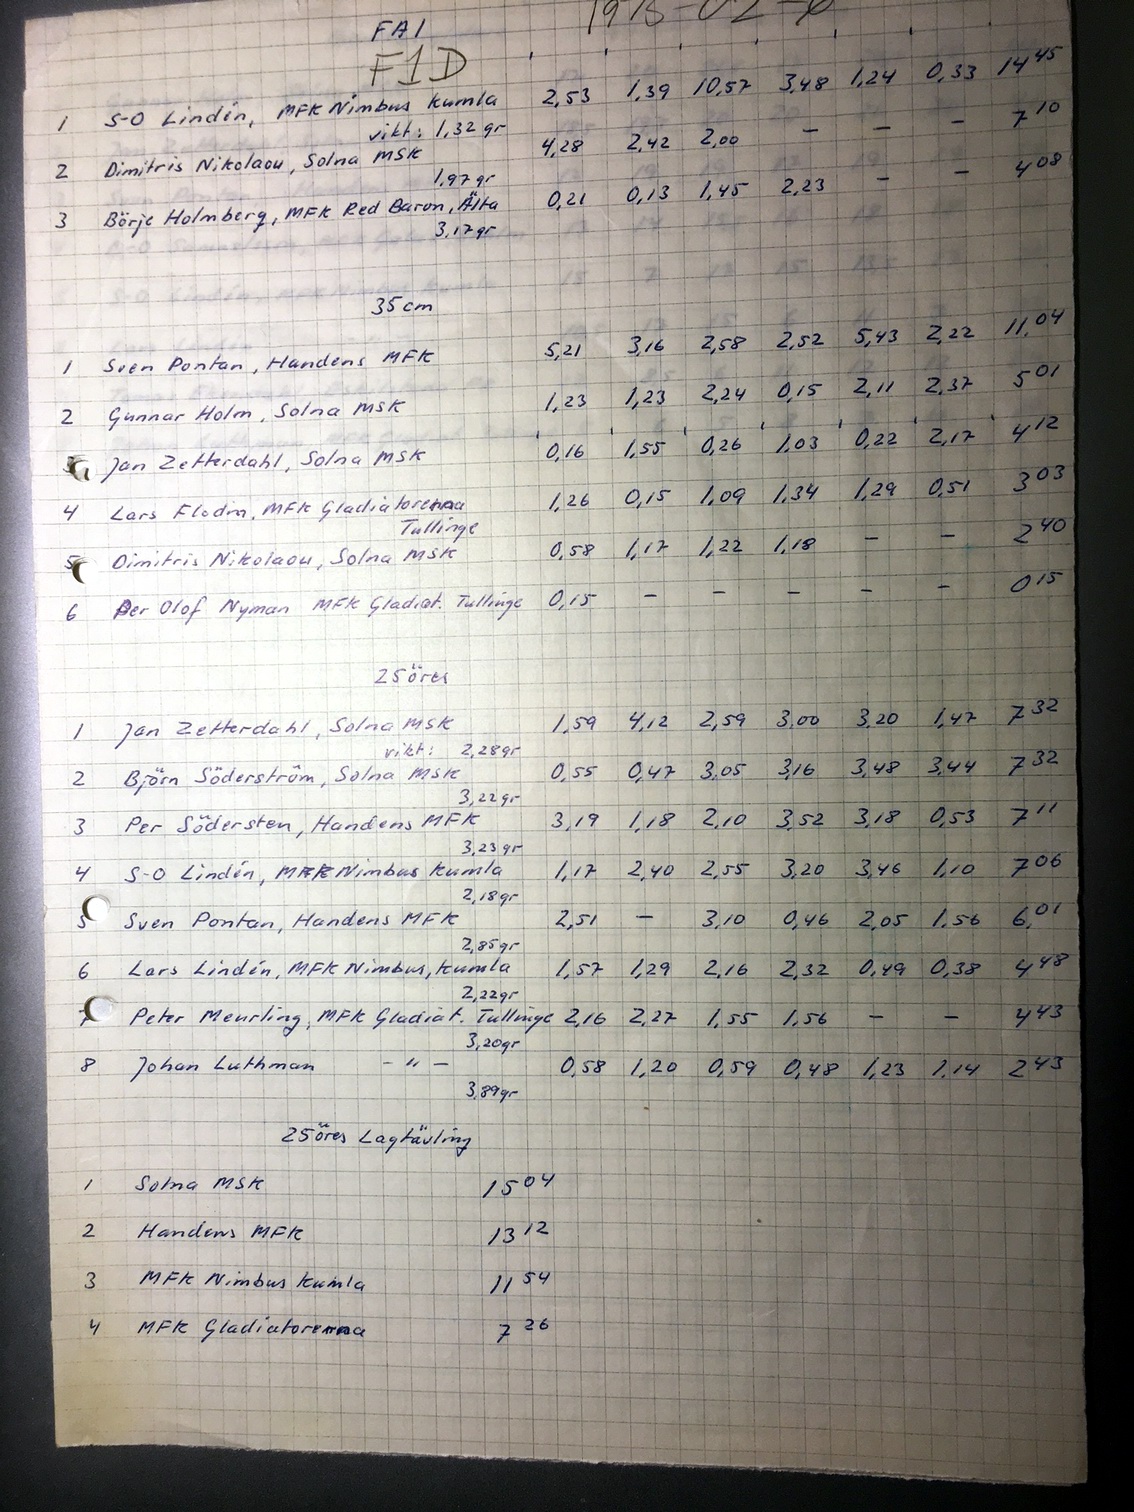 FAI
F1D
1 S-O Lindén, MFK Nimbus Kumla 2,53 1,39 10,57 3,48 1,24 0,33 14 45
vikt: 1,32 gr
2 Dimitris Nikolaou, Solna MSK 4,28 2,42 2,00 – – – 7 10
1,97 gr
3 Börje Holmberg, MFK Red Baron, Älta 0,21 0,13 1,45 2,23 – – 4 08
3,17 gr
35 cm
1 Sven Pontan, Handens MFK 5,21 3,16 2,58 2,52 5,43 2,22 11,04
2 Gunnar Holm, Solna MSK 1,23 1,23 2,24 0,15 2,11 2,37 5 01
Jan Zetterdahl, Solna MSK 0,16 1,55 0,26 1,03 0,22 2,17 4 12
4 Lars Flodm, MFK Gladiatorerna 1,26 0,15 1,09 1,34 1,29 0,51 3 03
Tullinge
5 Dimitris Nikolaou, Solna MSK 0,58 1,17 1,22 1,18 – – 2 40
6 Per Olof Nyman MFK Gladiat. Tullinge 0,15 – – – – – 0 15
25 öres
1 Jan Zetterdahl, Solna MSK 1,59 4,12 2,59 3,00 3,20 1,47 7 32
vikt: 2,28 gr
2 Björn Söderström, Solna MSK 0,55 0,47 3,05 3,16 3,48 3,44 7 32
3,22 gr
3 Per Södersten, Handens MFK 3,19 1,18 2,10 3,52 3,18 0,53 7 11
3,23 gr
4 S-O Lindén, MFK Nimbus Kumla 1,17 2,40 2,55 3,20 3,46 1,10 7 06
2,18 gr
5 Sven Pontan, Handens MFK 2,51 – 3,10 0,46 2,05 1,56 6,01
2,85 gr
6 Lars Lindén, MFK Nimbus, Kumla 1,57 1,29 2,16 2,32 0,49 0,38 4 48
2,22 gr
7 Peter Meurling, MFK Gladiat. Tullinge 2,16 2,27 1,55 1,56 – – 4 43
3,20 gr
8 Johan Luthman – " – 0,58 1,20 0,59 0,48 1,23 1,14 2 43
3,89 gr
25 öres Lagtävling
1 Solna MSK 15 04
2 Handens MFK 13 12
3 MFK Nimbus Kumla 11 54
4 MFK Gladiatorerna 7 26